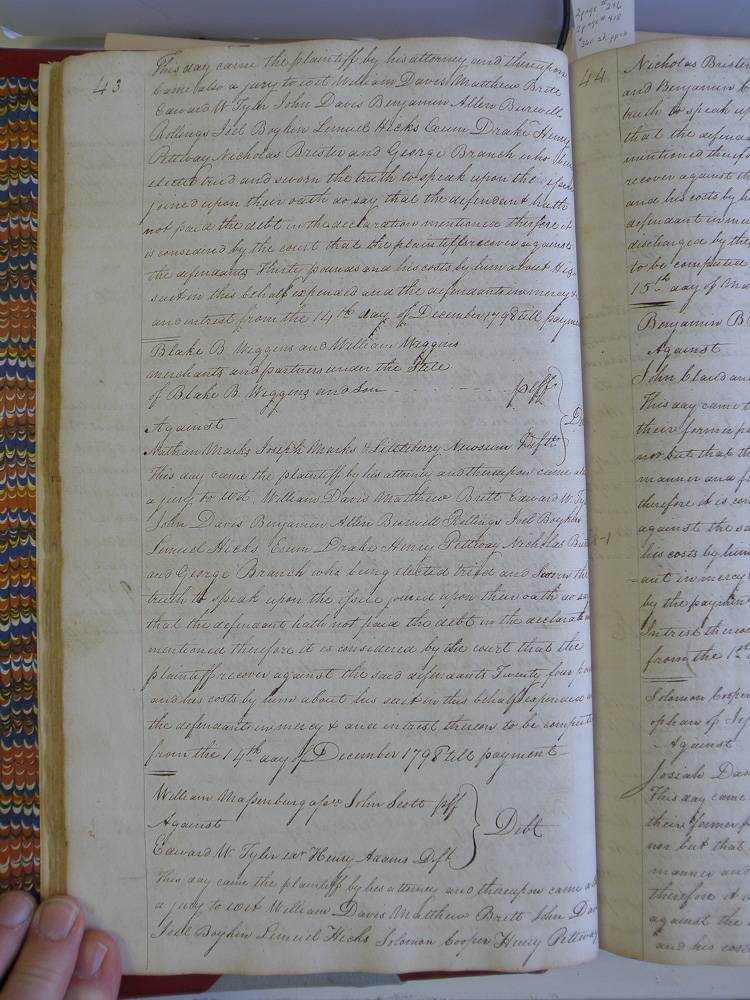 2 page # 246
2 page # 418
43
This day came the plaintiff by his attorney and thereupon
came also a jury to wit William Davis Matthew Brett
Edward W. Tyler John Davis Benjamin Allen Burwell
Rollings Joel Boykin Lemuel Hicks Exum Drake Henry
Pettway Nicholas Brister and George Branch who being
elected tried and sworn the truth to speak upon the issue
joined upon their oath do say that the defendant hath
not paid the debt in the declaration mentioned therefore it
is considered by the court that the plaintiff recover against
the defendants Thirty pounds and his costs by him about his
suit in this behalf expended and the defendants in mercy &
and intrest from the 14th day of December 1798 till payment
Blake B Wiggins and William Wiggins
merchants and partners under the Stile
of Blake B. Wiggins and Son plff
Against
Nathan Marks Joseph Marks & Littleberry Newsum Defts
This day came the plaintiff by his attorney and thereupon came also
a jury to wit William Davis Matthew Brett Edward W. Tyler
John Davis Benjamin Allen Burwell Rollings Joel Boykin
Lemuel Hicks Exum Drake Henry Pettway Nicholas
and George Branch who being elected tried and Sworn the
truth to speak upon the issue joined upon their oath do say
that the defendant hath not paid the debt in the declaration
mentioned therefore it is considered by the court that the
plaintiff recover against the said defendants Twenty four
and his costs by him about his suit in this behalf expended
the defendants in mercy & and intrest thereon to be computed
from the 14th day of December 1798 till payment
William Massenburg John Scott plf
Against
Debt
Edward W. Tyler exr Henry Adams Deft
This day came the plaintiff by his attorney and thereupon came
a jury to wit William Davis Matthew Brett John
Joel Boykin Lemuel Hicks Solomon Cooper Henry Pettway
44
Nicholas Brister
and Benjamin
truth to speak
that the
mentioned
recover against
and his costs by
defendant in
discharged by the
to be computed
15th day of
Benjamin
Against
John
This day came
their former
nor but that
manner and
therefore it is
against the
his costs by him
in mercy
by the payment
Intrest thereon
from the 1st
Solomon Cooper
orphan of
Against
Josiah
This day came
their former
nor but that
manner and
therefore it
against the
and his costs